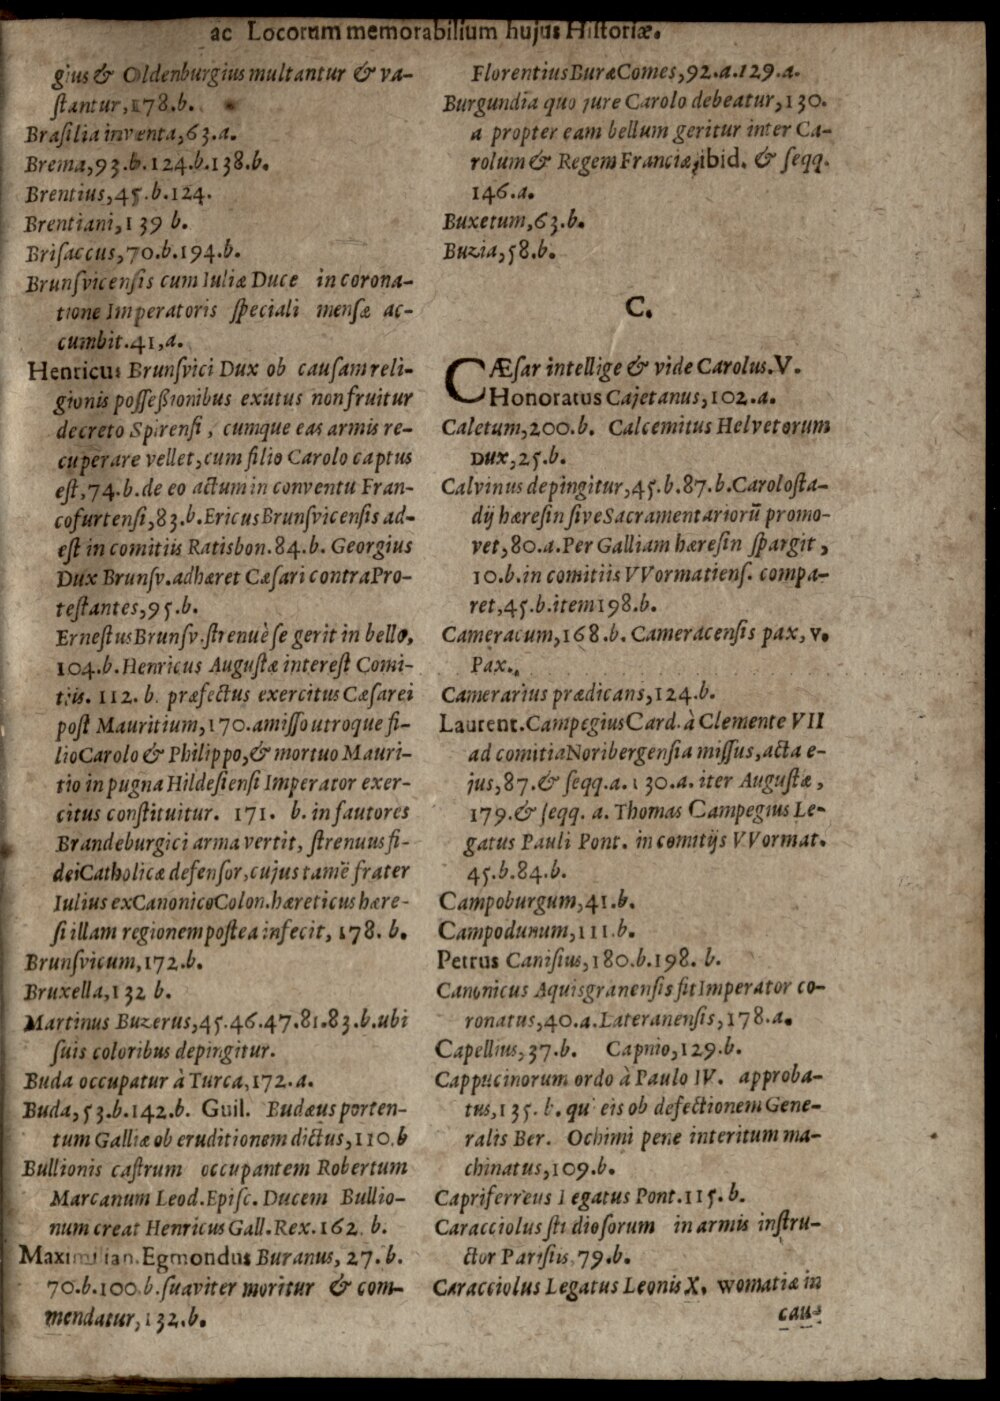 ac Locorum memorabilium hujus Historiæ.
gius & Oldenburgius multantur & va-
stantur, 178.b.
Brasilia inventa, 63.a.
Brema, 93.b.124.b.138.b.
Brentius, 45.b.124.
Brentiani, 139 b.
Brisaccus, 70.b.194.b.
Brunsvicensis cum Iuliæ Duce in corona-
tione Imperatoris speciali mensæ ac-
cumbit.41,a.
Henricus Brunsvici Dux ob causam reli-
gionis possessionibus exutus non fruitur
decreto Spirensi, cumque eas armis re-
cuperare vellet, cum filio Carolo captus
est, 74.b. de eo actum in conventu Fran-
cofurtensi, 83.b. Ericus Brunsvicensis ad-
est in comitiis Ratisbon. 84.b. Georgius
Dux Brunsv. adhæret Cæsari contra Pro-
testantes, 95.b.
Ernestus Brunsv. strenuè se gerit in bello,
104.b. Henricus Augustæ interest Comi-
tiis. 112. b. præfectus exercitus Cæsarei
post Mauritium, 170. amisso utroque fi-
lio Carolo & Philippo, & mortuo Mauri-
tio in pugna Hildesiensi Imperator exer-
citus constituitur. 171. b. in fautores
Brandeburgici arma vertit, strenuus fi-
dei Catholicæ defensor, cujus tamẽ frater
Iulius ex Canonico Colon. hæreticus hære-
si illam regionem postea infecit, 178. b.
Brunsvicum, 172.b.
Bruxella, 132 b.
Martinus Buzerus, 45.46.47.81.83.b. ubi
suis coloribus depingitur.
Buda occupatur à Turca, 172.a.
Buda, 53.b.142.b. Guil. Budæus porten-
tum Galliæ ob eruditionem dictus, 110.b
Bullionis castrum occupantem Robertum
Marcanum Leod. Episc. Ducem Bullio-
num creat Henricus Gall. Rex. 162. b.
Maximilian. Egmondus Buranus, 27. b.
70.b.100.b. suaviter moritur & com-
mendatur, 132.b.
Florentius Buræ Comes, 92.a.129.a.
Burgundia quo jure Carolo debeatur, 130.
a propter eam bellum geritur inter Ca-
rolum & Regem Franciæ, ibid. & seqq.
146.a.
Buxetum, 63.b.
Buzia, 58.b.
C.
CÆsar intellige & vide Carolus. V.
Honoratus Cajetanus, 102.a.
Caletum, 200.b. Calcemitus Helvetorum
Dux, 25.b.
Calvinus depingitur, 45.b.87.b. Carolosta-
dij hæresin sive Sacramentariorũ promo-
vet, 80.a. Per Galliam hæresin spargit,
10.b. in comitiis VVormatiens. compa-
ret, 45.b. item 198.b.
Cameracum, 168.b. Cameracensis pax, v.
Pax.
Camerarius prædicans, 124.b.
Laurent. Campegius Card. à Clemente VII
ad comitia Noribergensia missus, acta e-
jus, 87. & seqq. a. 130.a. iter Augustæ,
179. & seqq. a. Thomas Campegius Le-
gatus Pauli Pont. in comitijs VVormat.
45.b.84.b.
Campoburgum, 41.b.
Campodunum, 111.b.
Petrus Canisius, 180.b.198. b.
Canonicus Aquisgranensis fit Imperator co-
ronatus, 40.a. Lateranensis, 178.a.
Capellius, 37.b. Capnio, 129.b.
Cappucinorum ordo à Paulo IV. approba-
tus, 135. b. qui eis ob defectionem Gene-
ralis Ber. Ochimi pene interitum ma-
chinatus, 109.b.
Capriferreus Legatus Pont. 115. b.
Caracciolus studiosorum in armis instru-
ctor Parisiis, 79.b.
Caracciolus Legatus Leonis X. womatiæ in
cau-